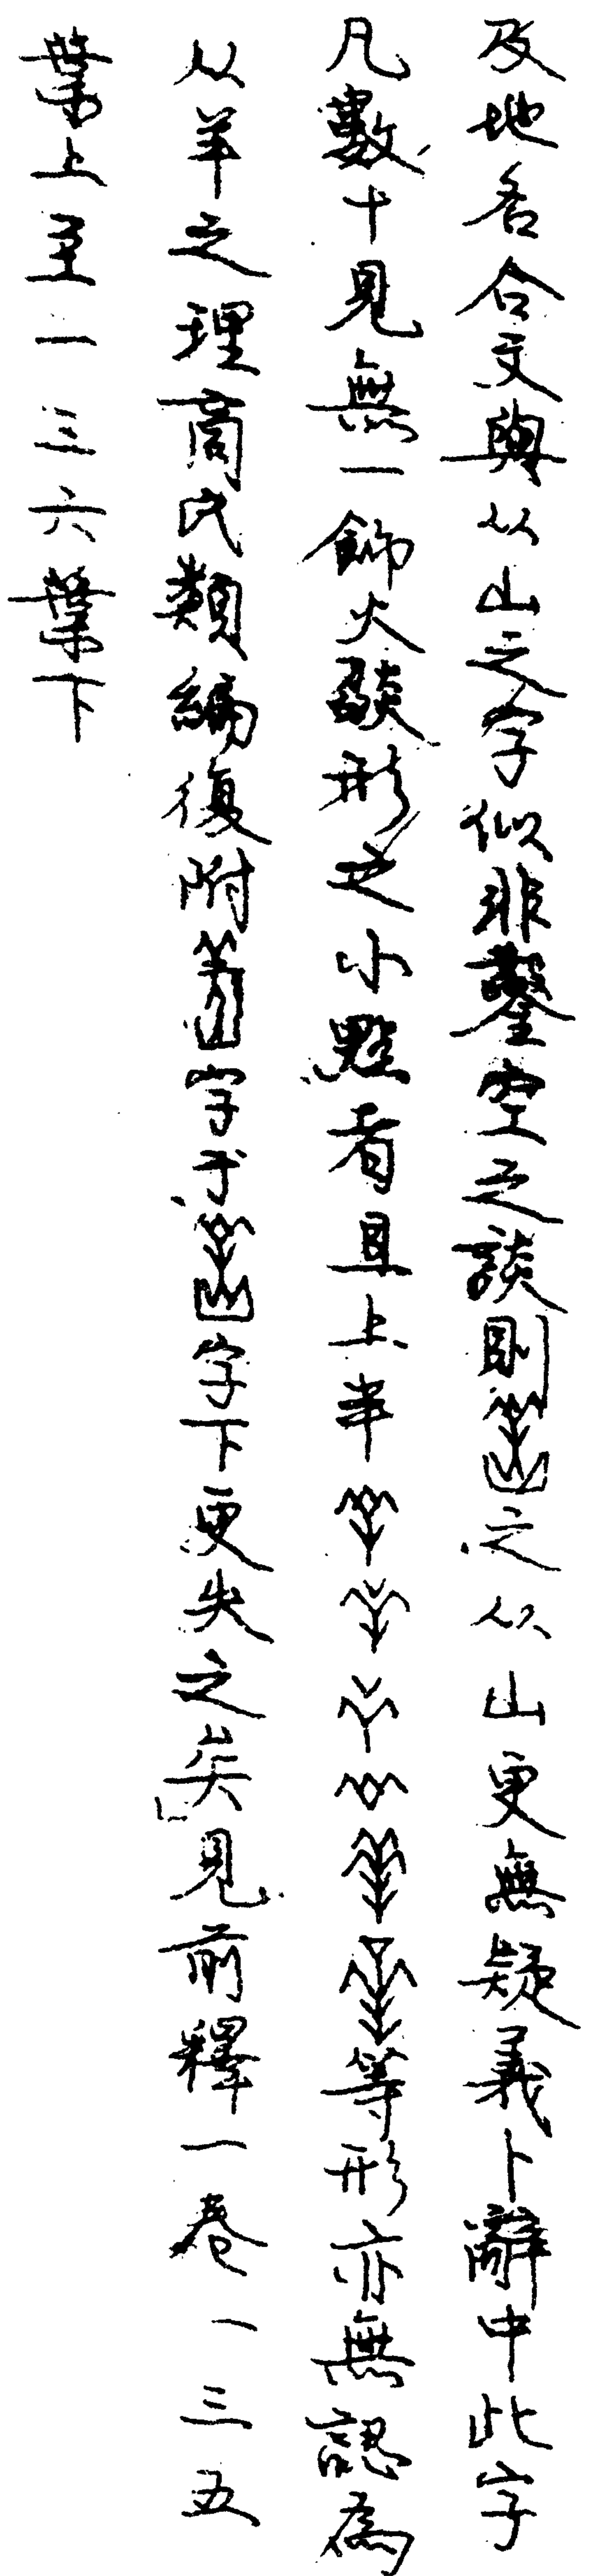 及地名合文與从山之字似非鑿空之談則之从山更無疑義卜辭中此字
凡數十見無一飾火燄形之小點者且上半等形亦無認為
从羊之理商氏類編復附字于字下更失之矣」見前釋一卷一三五
葉上至一三六葉下